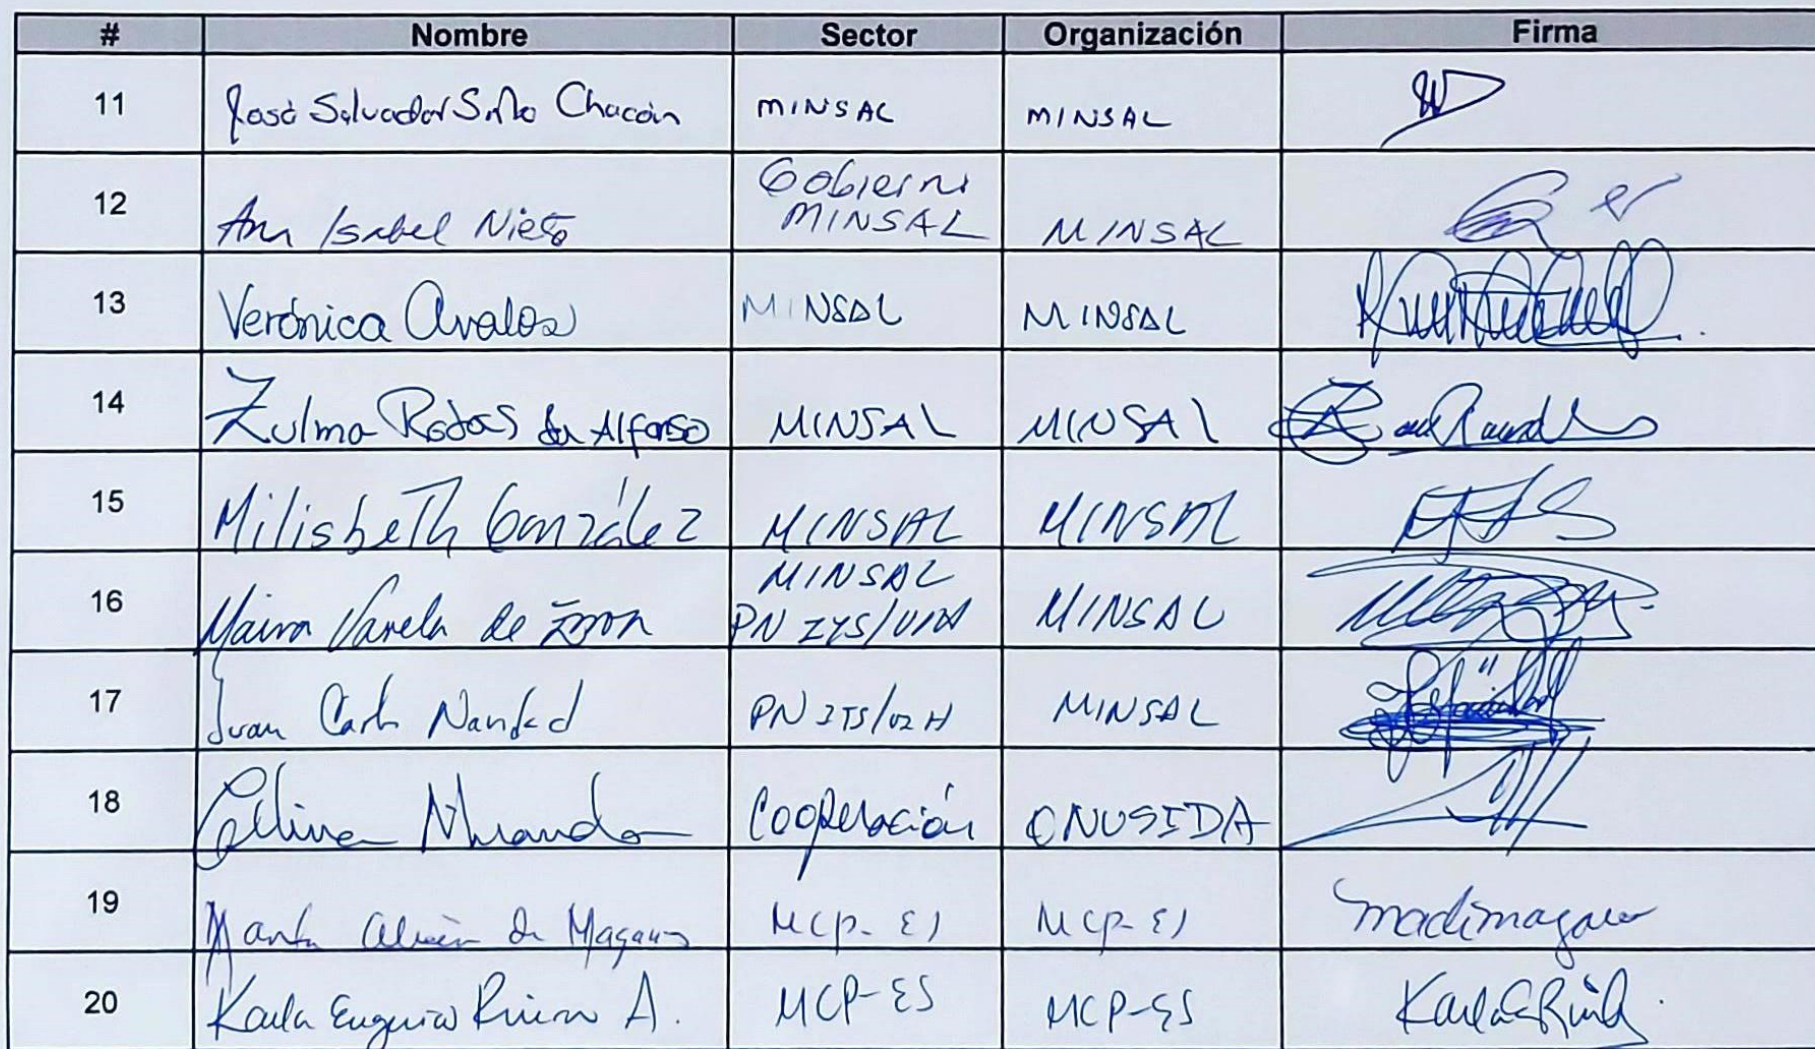 # Nombre Sector Organización Firma
11 José Salvador Chacón MINSAL MINSAL
12 Ana Isabel Nieto Gobierno MINSAL MINSAL
13 Verónica Avalos MINSAL MINSAL
14 Zulma Rodas de Alfonso MINSAL MINSAL
15 Milisbeth González MINSAL MINSAL
16 Maira Varela de MINSAL PN ITS/VIH MINSAL
17 Juan Carlos PN ITS/VIH MINSAL
18 Celina Miranda Cooperación ONUSIDA
19 Marta de Magaña MCP-ES MCP-ES
20 Karla Eugenia Rivera A. MCP-ES MCP-ES